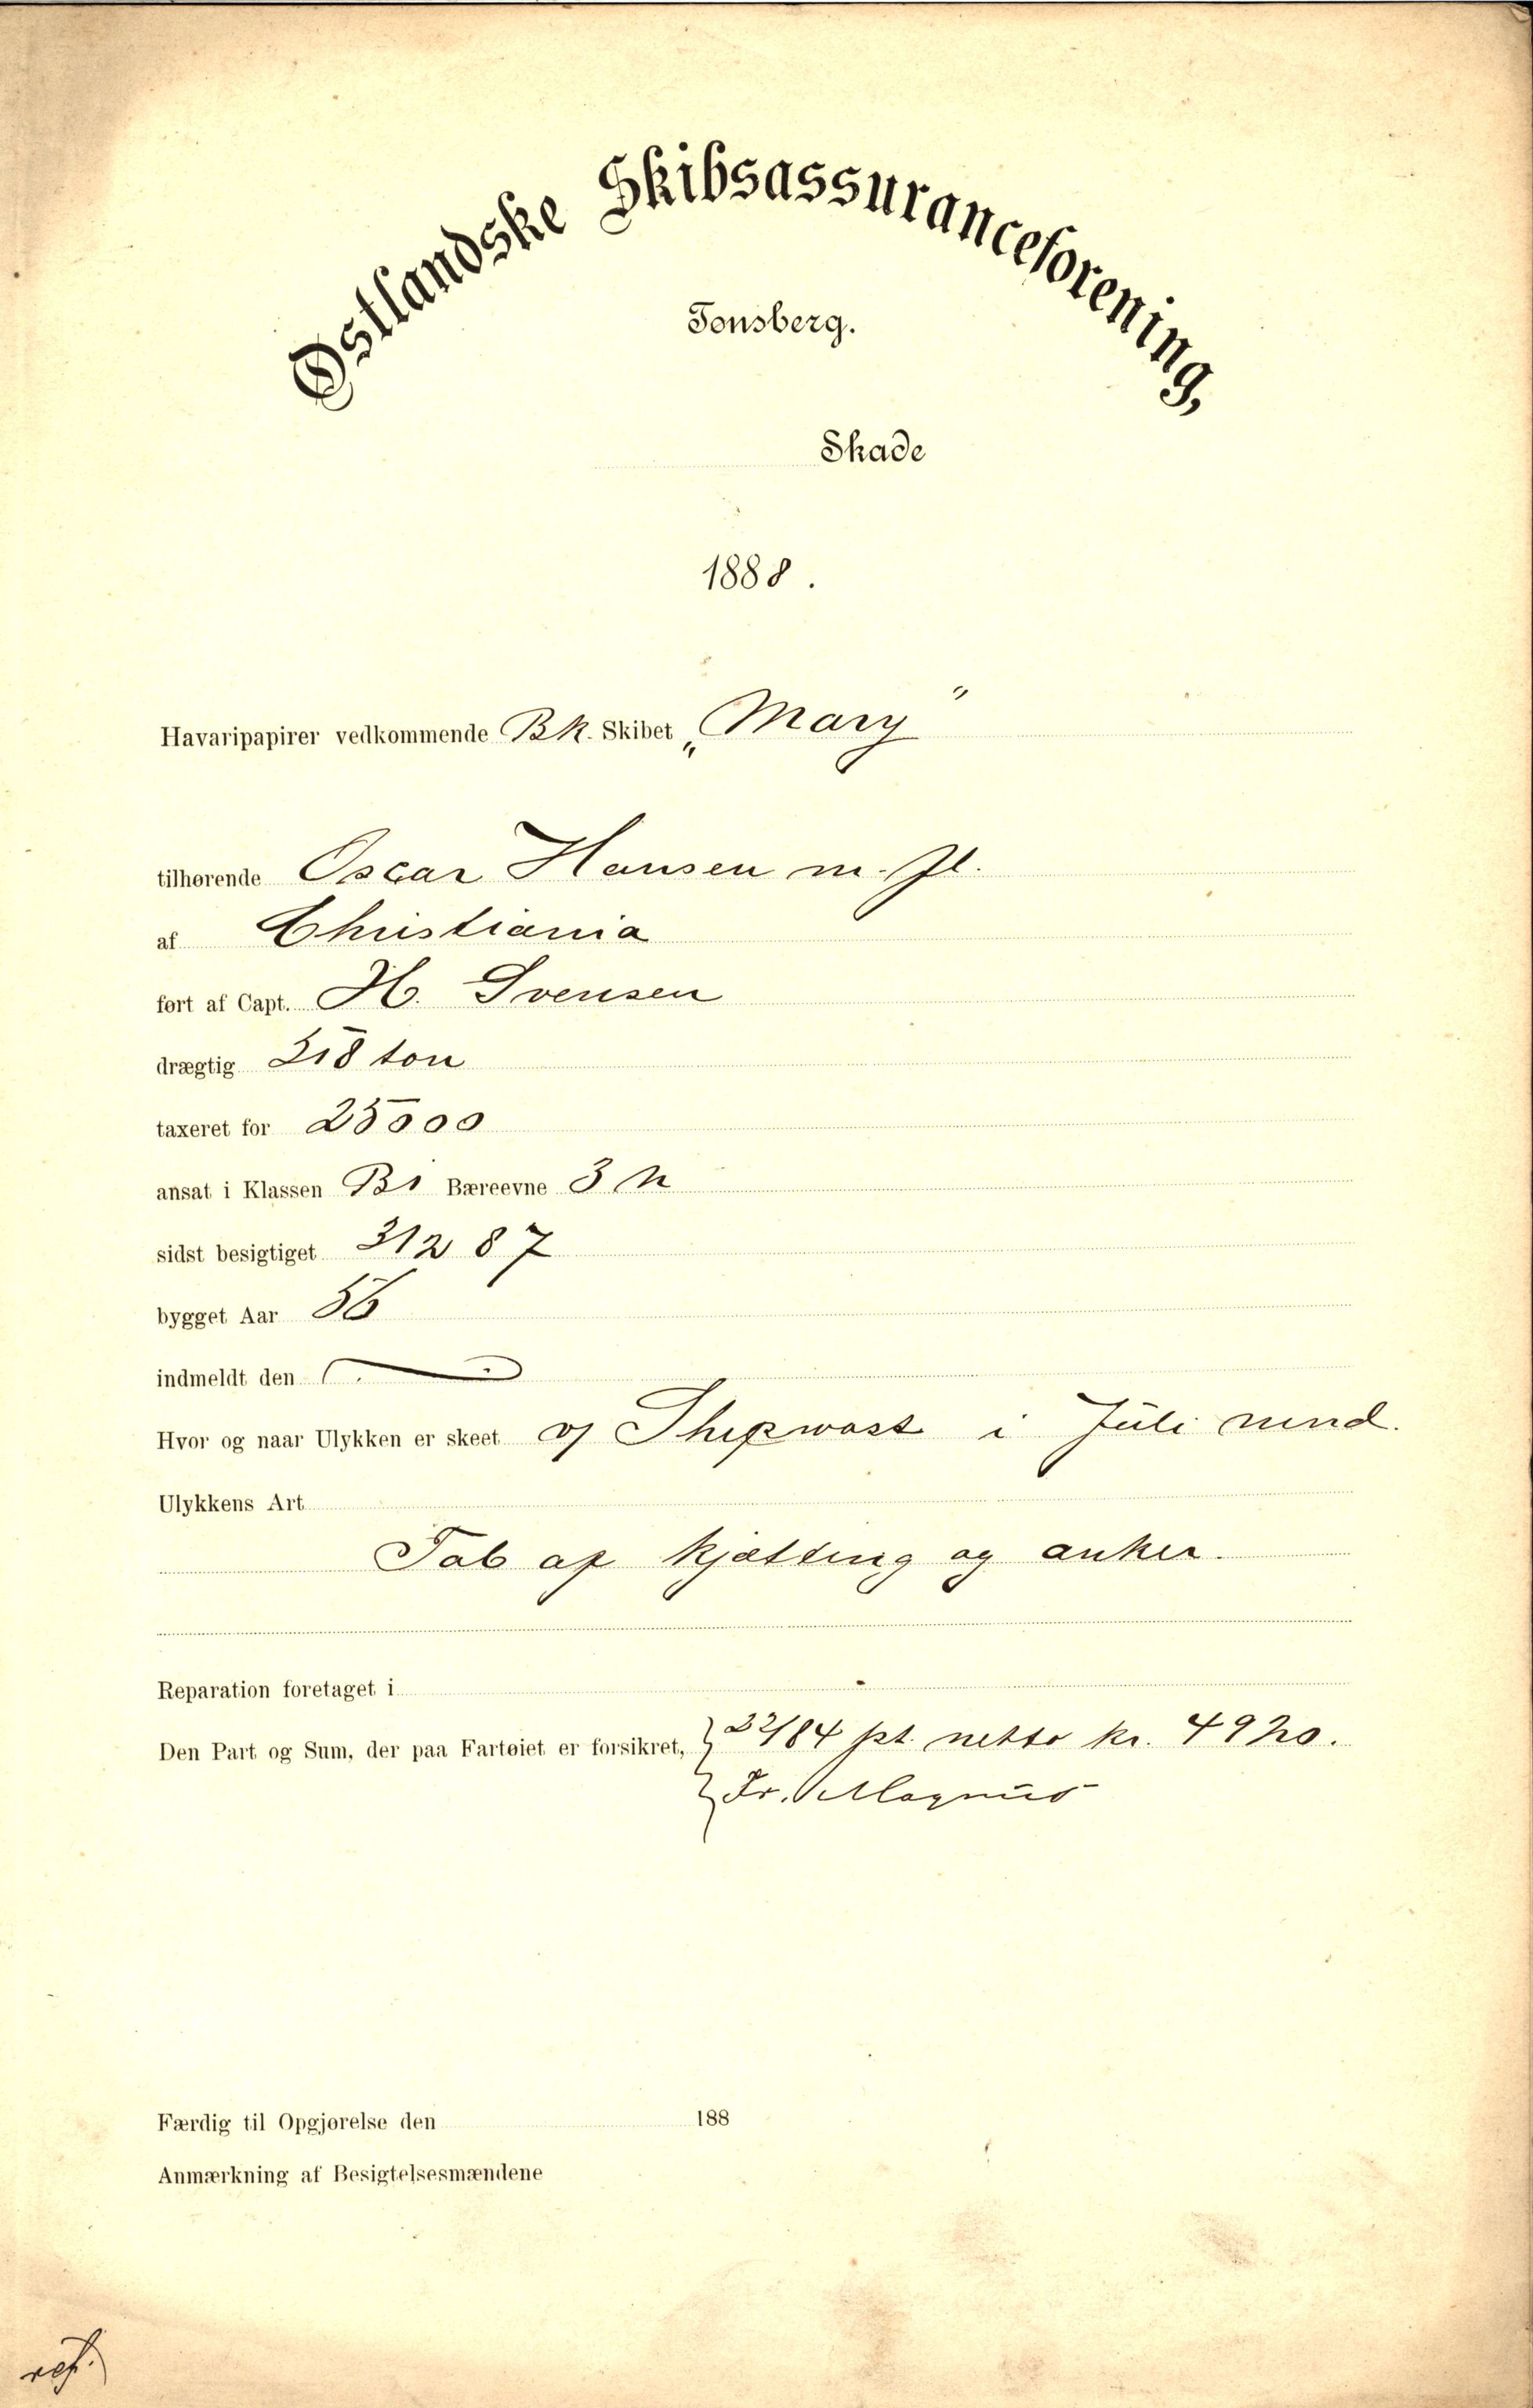 Østlandske Skibsassuranceforening,
Tønsberg.
Skade
1888.
Havaripapirer vedkommende Bk. Skibet „Mary"
tilhørende Oscar Hansen m. fl.
af Christiania
ført af Capt. H. Svensen
drægtig 318 ton
taxeret for 25000
ansat i Klassen B1 Bæreevne 3
sidst besigtiget 87
bygget Aar 56
indmeldt den
Hvor og naar Ulykken er skeet v/ i Juli mnd.
Ulykkens Art
Tab af kjætting og anker.
Reparation foretaget i
Den Part og Sum, der paa Fartøiet er forsikret, /84 pt. netto kr. 4920.
Fr. Magnus
Færdig til Opgjørelse den 188
Anmærkning af Besigtelsesmændene